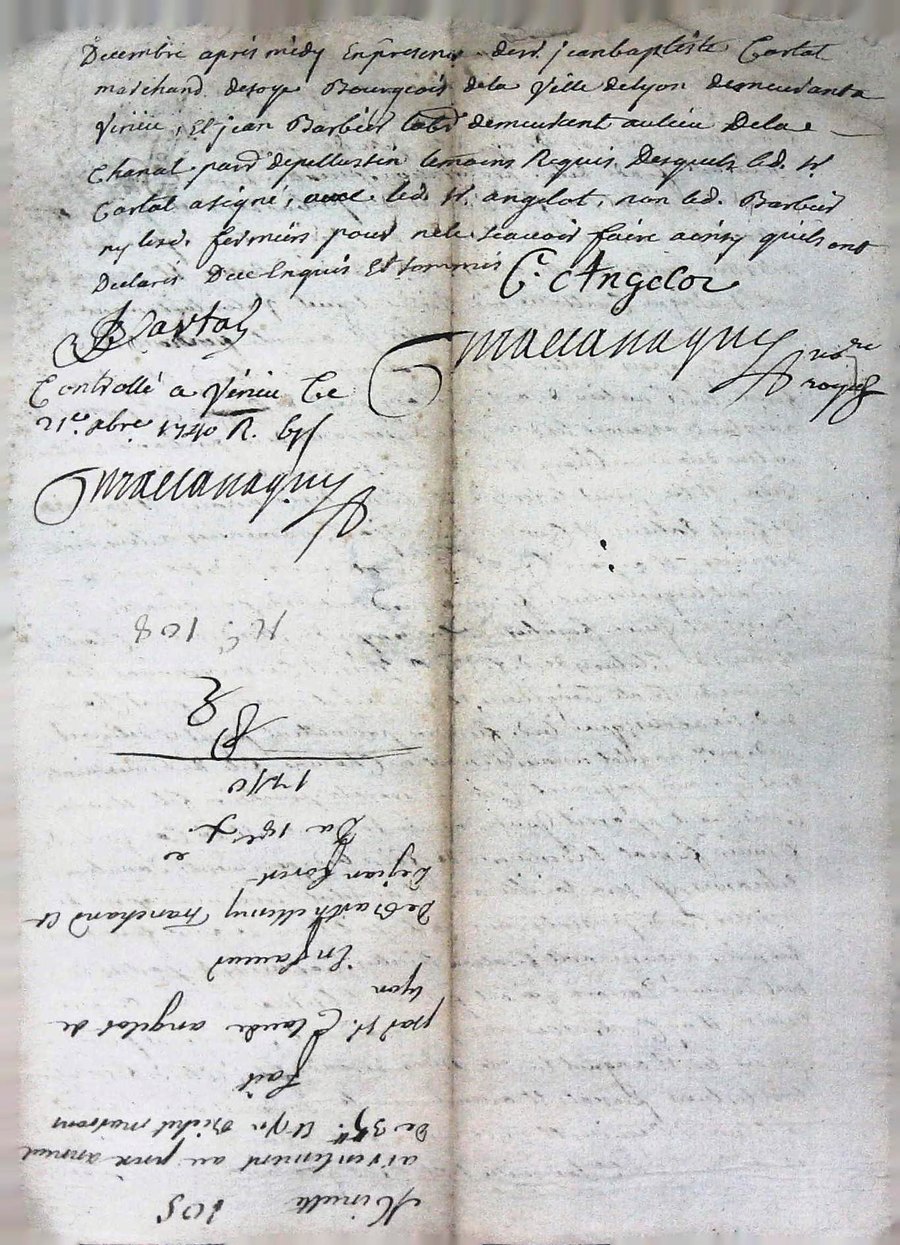 Decembre apres midy En presence de sr. jean baptiste Cartal
marchand de soye Bourgeois de la Ville de Lyon demeurant a
Virieu, Et jean Barbier demeurant au lieu De la
Chanal de pellussin temoins Requis Desquels led. sr.
Cartal a signé, avec led. sr. angelot, non led. Barbier
ny lesd. fermiers pour ne le scavoir faire ainsy quils ont
Declaré De ce Enquis Et sommés
C. Angelot
JB Cartal
Maccanaguy nore royal
Controllé a Virieu Le
21e. xbre 1740 R.
Maccanaguy
No. 108
1740
Du 18e x.
De jean foret
De Barthellemy Franchand Et
En faveur
Lyon
par sr. Claude angelot de
fait
De 35tt. Et
au prix annuel
Minutte 105